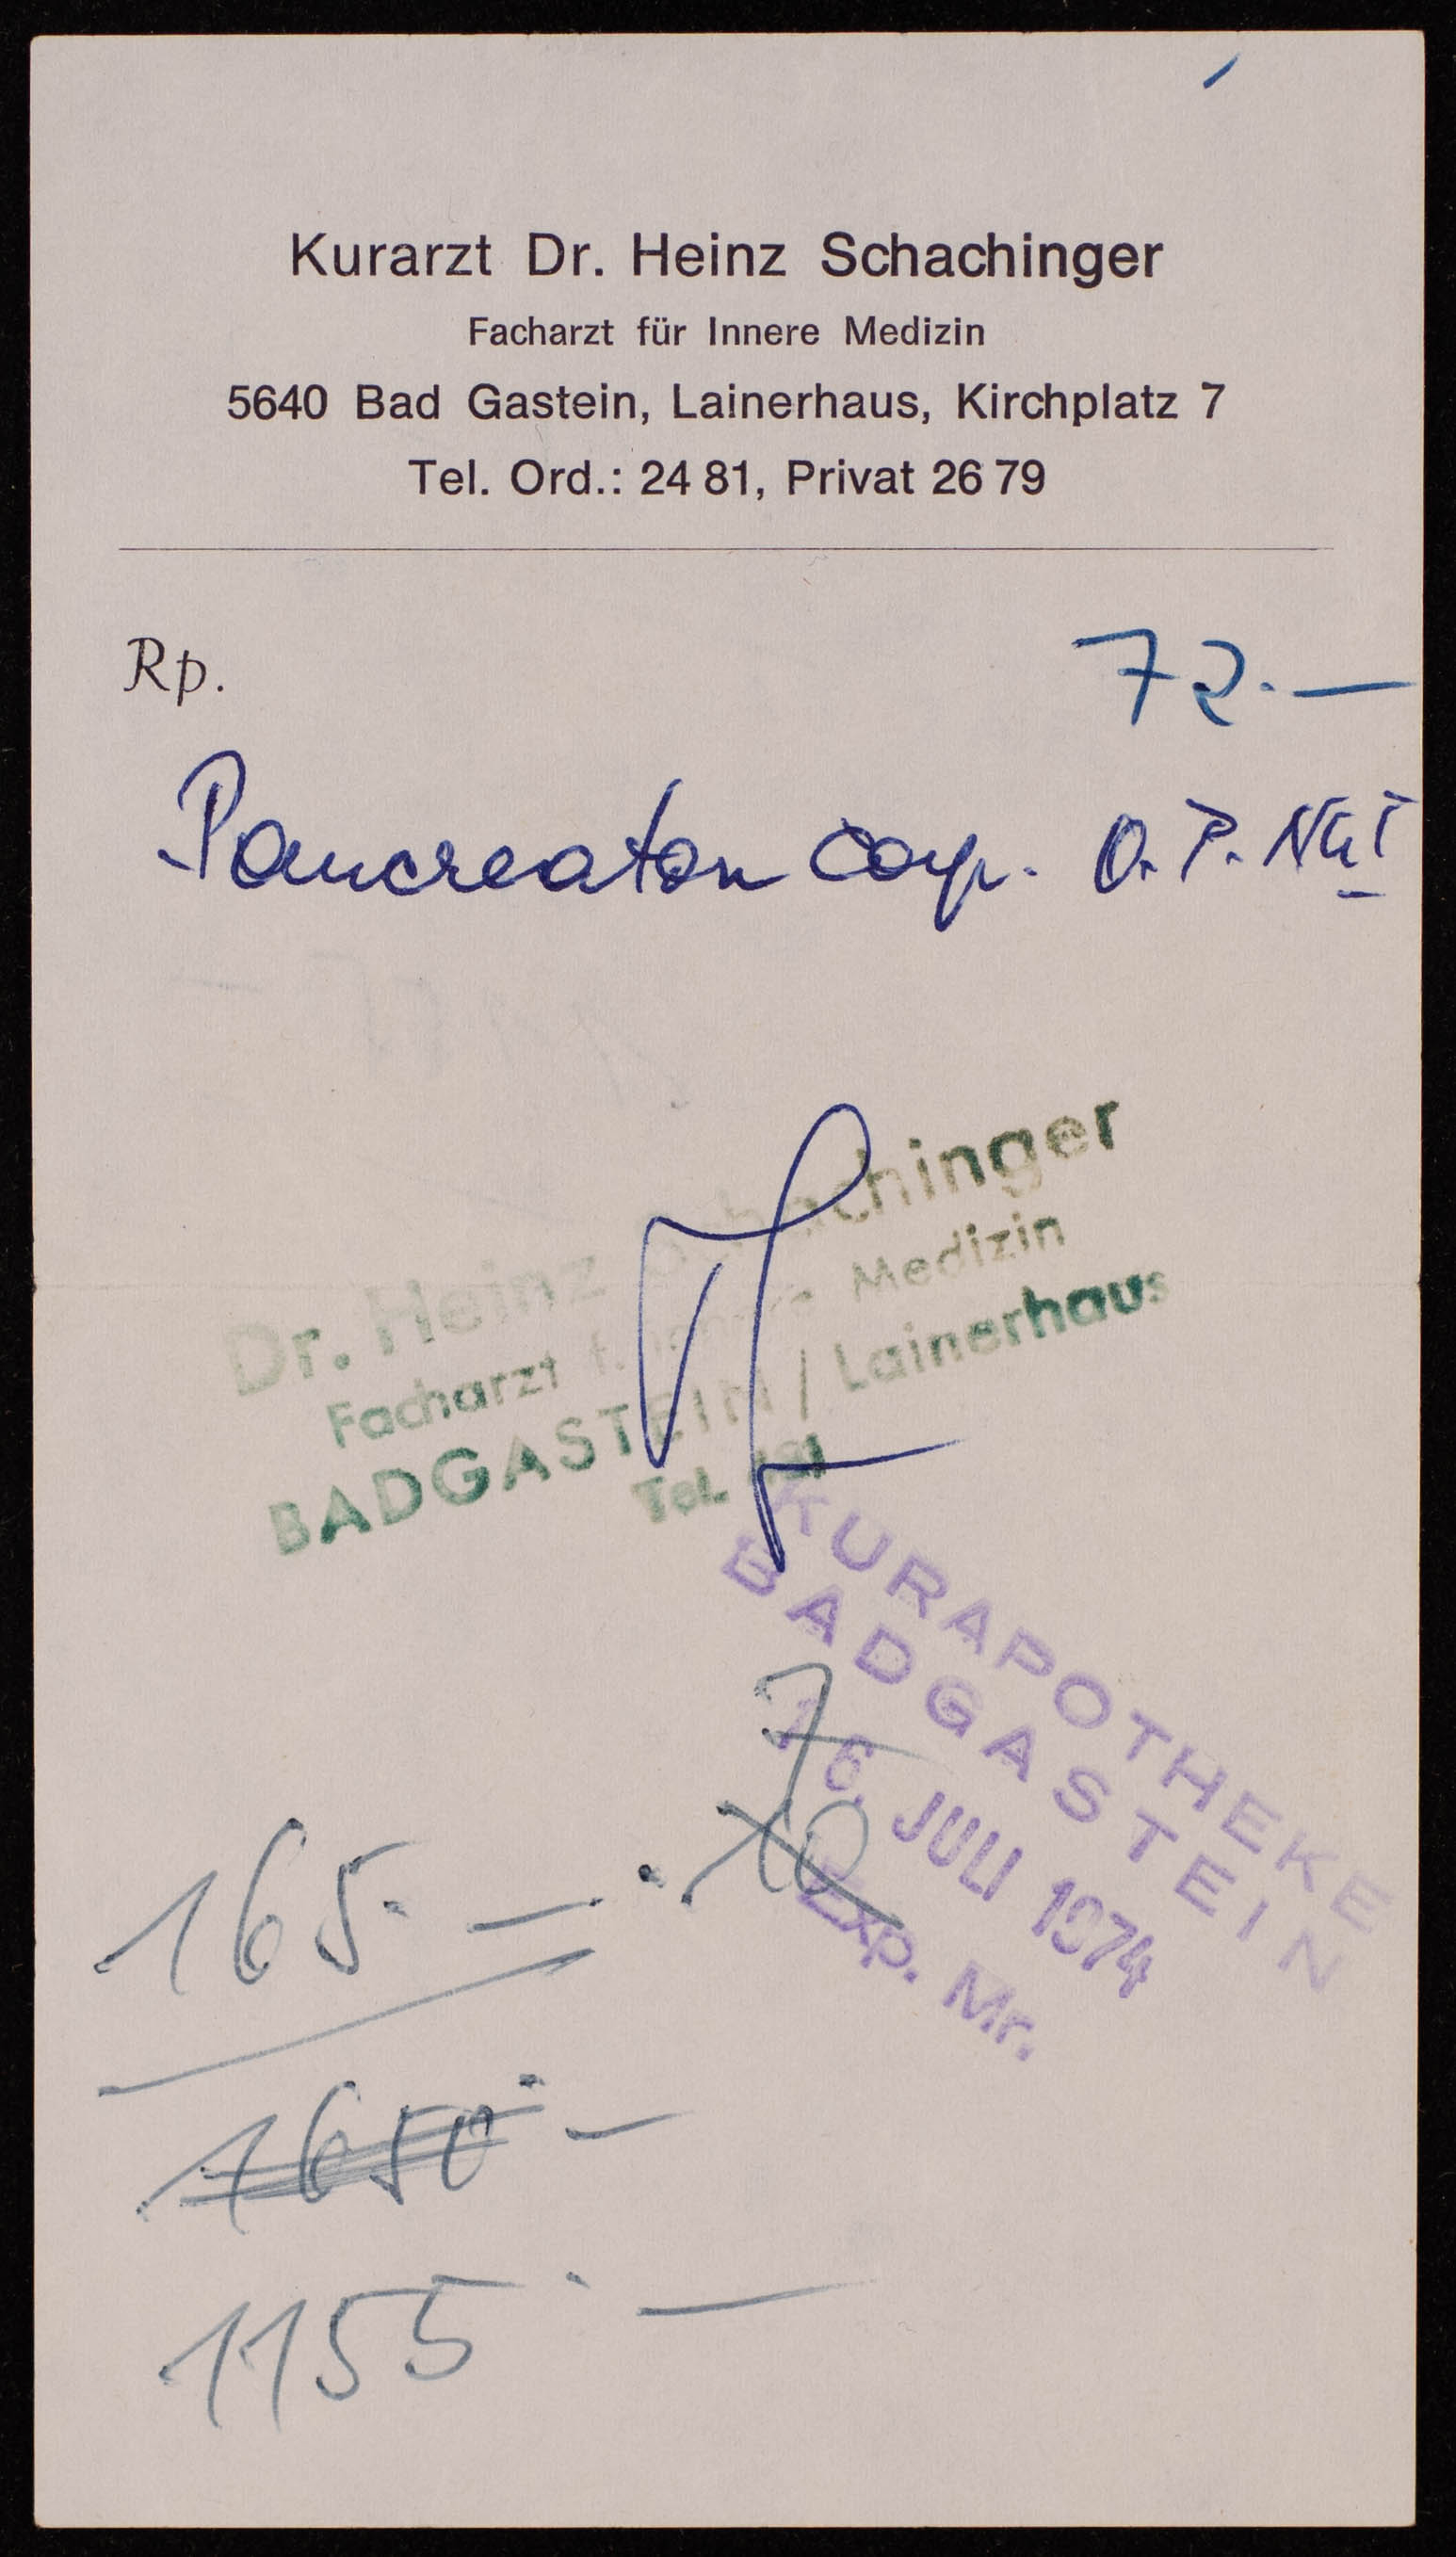 Kurarzt Dr. Heinz Schachinger
Facharzt für Innere Medizin
5640 Bad Gastein, Lainerhaus, Kirchplatz 7
Tel. Ord.: 24 81, Privat 26 79
Rp.
72.—
Pancreaton O. P. N
Dr. Heinz Schachinger
Facharzt f. Innere Medizin
BADGASTEIN / Lainerhaus
Tel.
KURAPOTHEKE
BADGASTEIN
16. JULI 1974
Exp. Mr.
7
165.— . 10
1650.—
1155.—